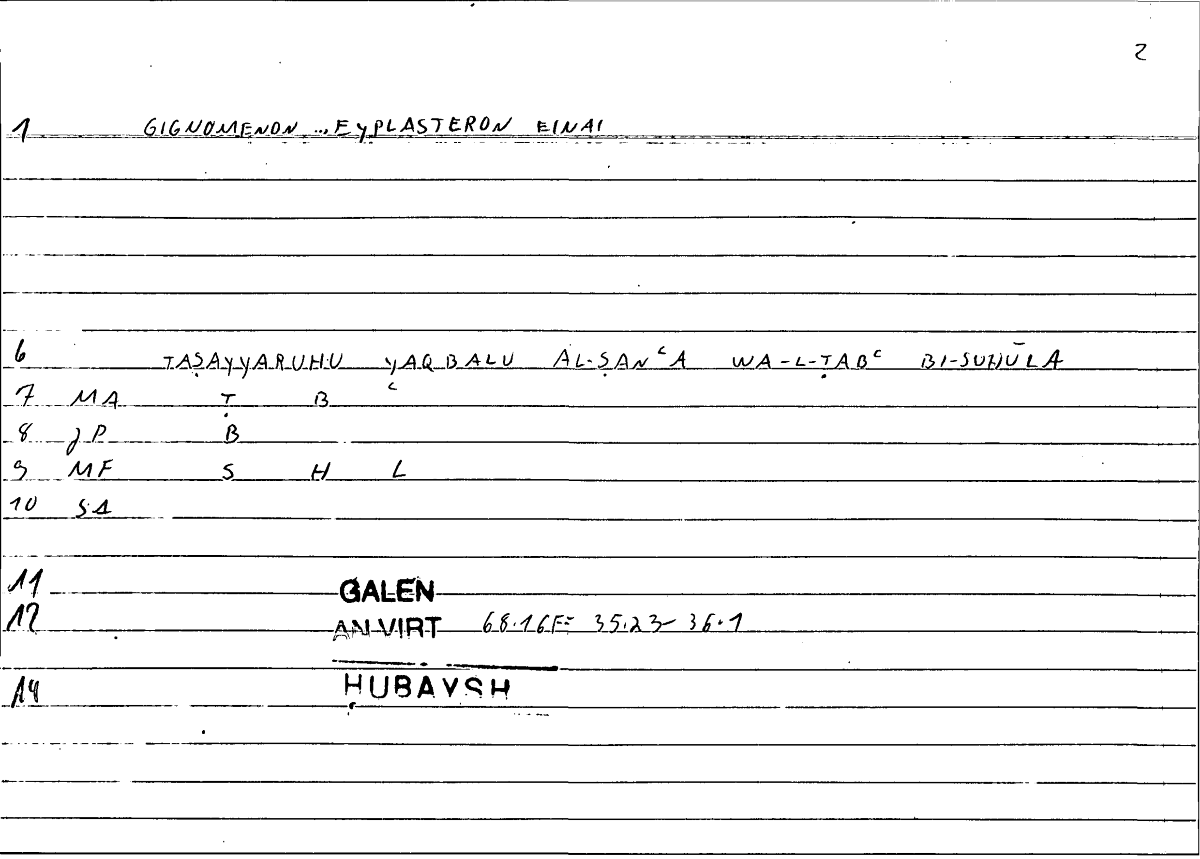 2
1 GIGNOMENON ... EyPLASTERON EINAI
6 TAṢAyyARUHU yAQBALU AL-ṢANᶜA WA-L-ṬABᶜ BI-SUHŪLA
7 MA Ṭ B ᶜ
8 JP B
9 MF S H L
10 SA
11 GALEN
12 AN.VIRT 68.16F= 35.23- 36.1
14 ḤUBAYSH